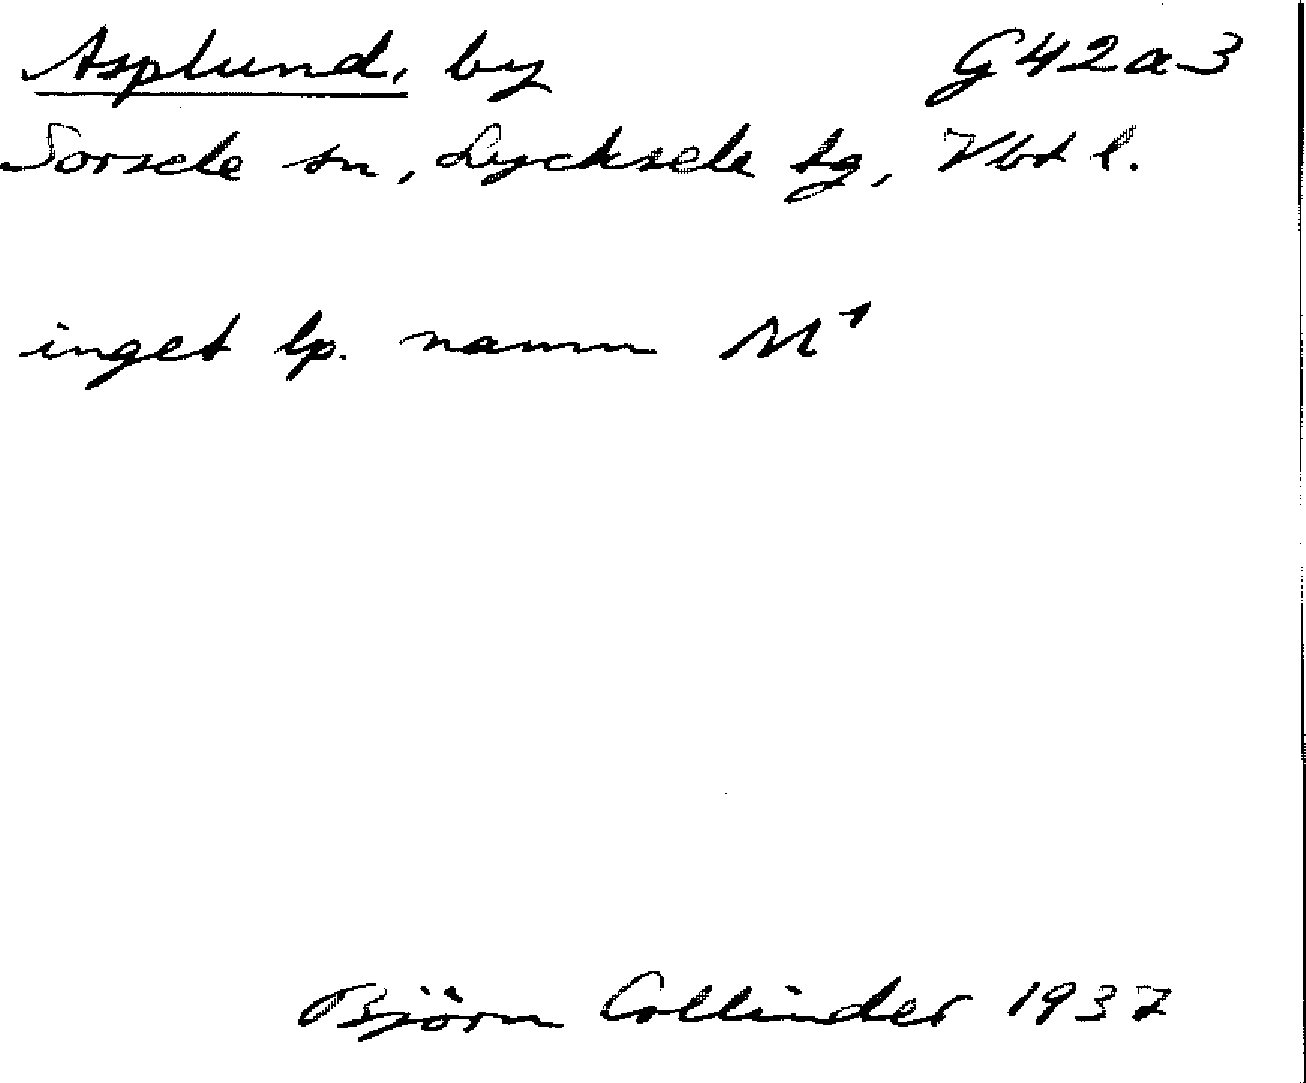 Asplund, by G42a3
Sorsele sn, Lycksele tg, Vbt l.
inget lp. namn M¹
Björn Collinder 1937